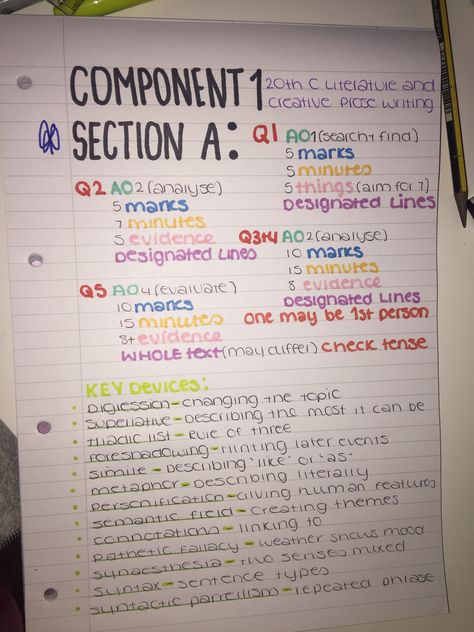 COMPONENT 1
20th C Literature and
Creative Prose Writing
SECTION A:
Q1 AO1 (search + find)
5 marks
5 minutes
5 things (aim for 7)
Designated Lines
Q2 AO2 (analyse)
5 marks
7 minutes
5 evidence
Designated Lines
Q3+4 AO2 (analyse)
10 marks
15 minutes
8 evidence
Designated Lines
one may be 1st person
Q5 AO4 (evaluate)
10 marks
15 minutes
8+ evidence
WHOLE text (may differ) check tense
KEY Devices:
• Digression - changing the topic
• superlative - Describing the most it can be
• triadic list - Rule of three
• foreshadowing - Hinting later events
• simile - Describing 'like' or 'as'
• metaphor - Describing literally
• personification - Giving human features
• semantic field - creating themes
• connotations - linking to
• pathetic fallacy - weather shows mood
• synaesthesia - two senses mixed
• syntax - sentence types
• syntactic parrellism - repeated phrase